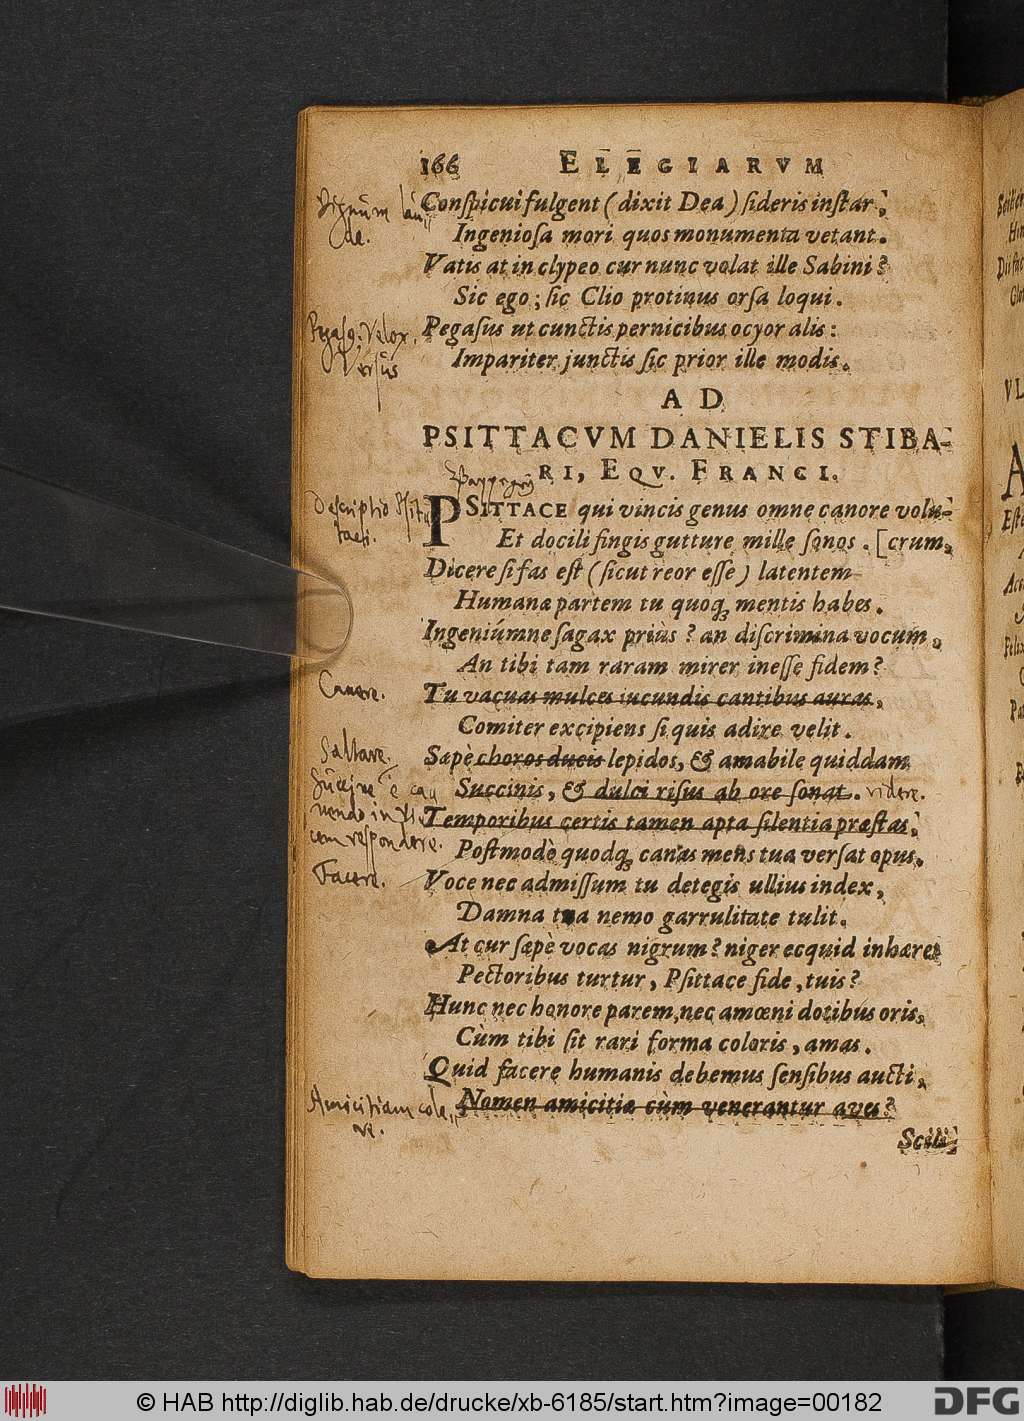 166 ELEGIARVM
Conſpicui fulgent (dixit Dea) ſideris inſtar,
Ingenioſa mori quos monumenta vetant.
Vatis at in clypeo cur nunc volat ille Sabini?
Sic ego; ſic Clio protinus orſa loqui.
Pegaſus ut cunctis pernicibus ocyor alis:
Impariter junctis ſic prior ille modis.
AD
PSITTACVM DANIELIS STIBA-
RI, EQV. FRANCI.
PSITTACE qui vincis genus omne canore volu-
Et docili fingis gutture mille ſonos. [crum,
Dicere ſi fas eſt (ſicut reor eſſe) latentem
Humanæ partem tu quoq; mentis habes.
Ingeniúmne ſagax priùs? an diſcrimina vocum,
An tibi tam raram mirer ineſſe fidem?
Tu vacuas mulces iucundis cantibus auras,
Comiter excipiens ſi quis adire velit.
Sæpè choros ducis lepidos, & amabile quiddam
Succinis, & dulci riſus ab ore ſonat. videre.
Temporibus certis tamen apta ſilentia præſtas,
Poſtmodò quodq; canas mens tua verſat opus.
Voce nec admiſſum tu detegis ullius index,
Damna tua nemo garrulitate tulit.
At cur ſæpè vocas nigrum? niger ecquid inhæret
Pectoribus turtur, Pſittace fide, tuis?
Hunc nec honore parem, nec amœni dotibus oris,
Cùm tibi ſit rari forma coloris, amas.
Quid facere humanis debemus ſenſibus aucti,
Nomen amicitiæ cùm venerantur aves?
Scili-
Canere.
Saltare.
Tacere.
© HAB http://diglib.hab.de/drucke/xb-6185/start.htm?image=00182
DFG